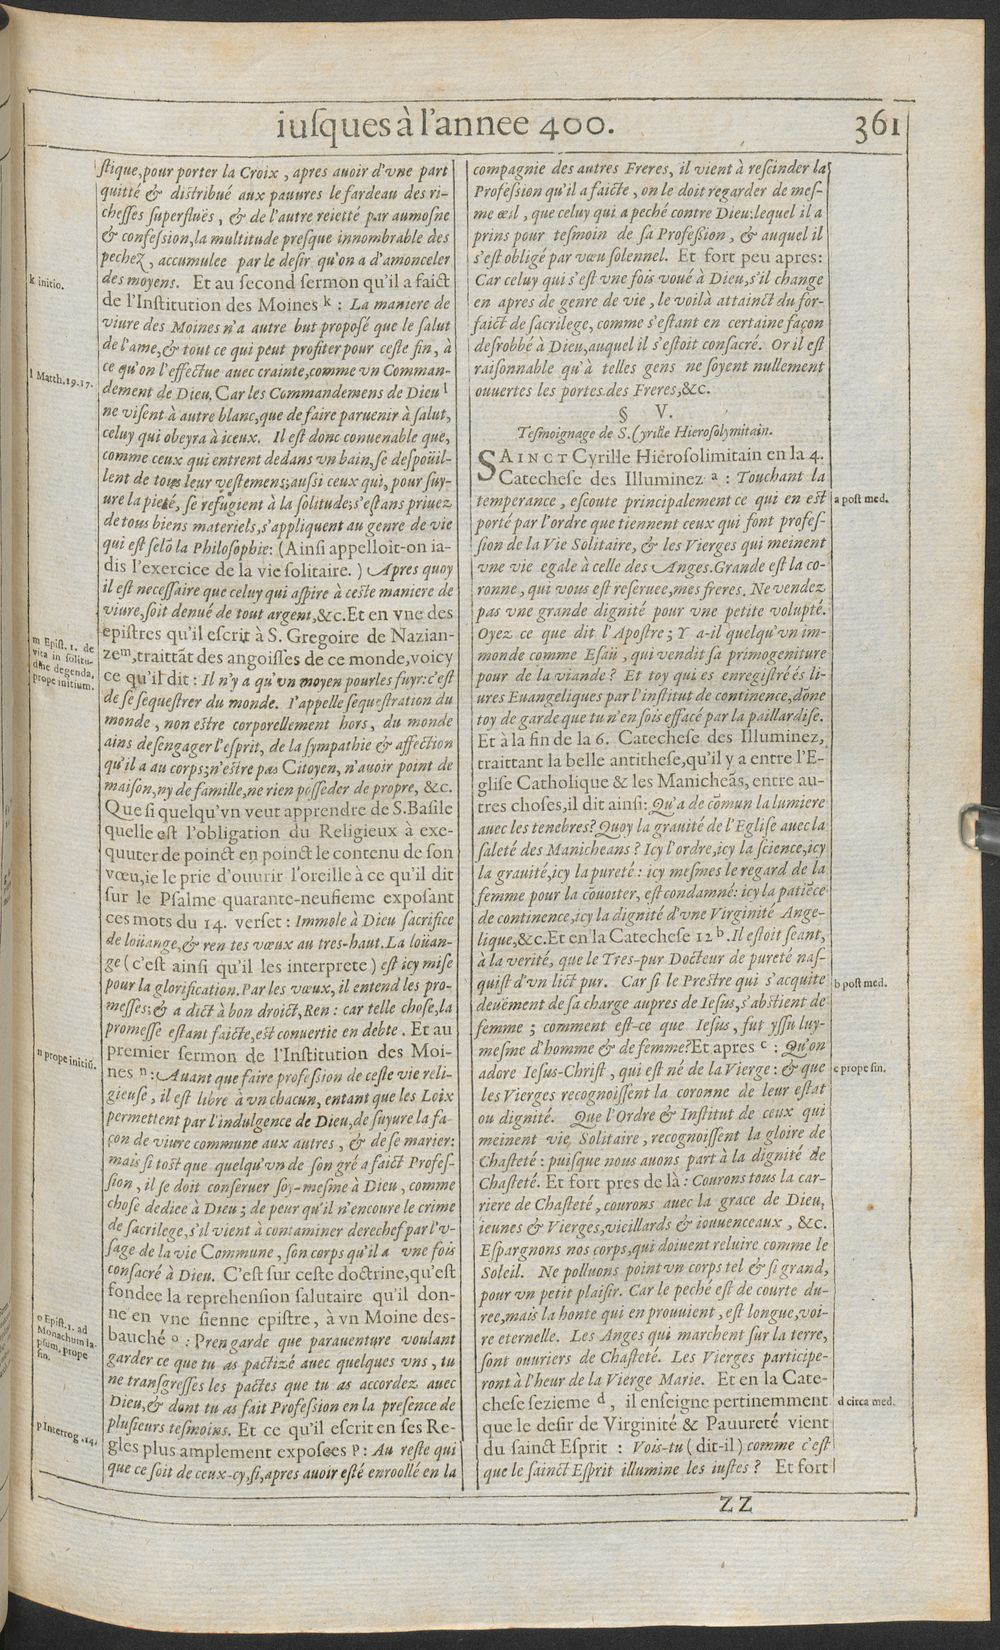 iusques à l'annee 400.
361
stique, pour porter la Croix, apres auoir d'vne part
quitté & distribué aux pauures le fardeau des ri-
chesses superfluës, & de l'autre reietté par aumosne
& confession, la multitude presque innombrable des
pechez, accumulee par le desir qu'on a d'amonceler
des moyens. Et au second sermon qu'il a faict
de l'Institution des Moines k : La maniere de
viure des Moines n'a autre but proposé que le salut
de l'ame, & tout ce qui peut profiter pour ceste fin, à
ce qu'on l'effectue auec crainte, comme vn Comman-
dement de Dieu. Car les Commandemens de Dieu l
ne visent à autre blanc, que de faire paruenir à salut,
celuy qui obeyra à iceux. Il est donc conuenable que,
comme ceux qui entrent dedans vn bain, se despoüil-
lent de tous leur vestemens; aussi ceux qui, pour suy-
ure la pieté, se refugient à la solitude; s'estans priuez
de tous biens materiels, s'appliquent au genre de vie
qui est selõ la Philosophie: (Ainsi appelloit-on ia-
dis l'exercice de la vie solitaire.) Apres quoy
il est necessaire que celuy qui aspire à ceste maniere de
viure, soit denué de tout argent, &c. Et en vne des
epistres qu'il escrit à S. Gregoire de Nazian-
ze m, traittãt des angoisses de ce monde, voicy
ce qu'il dit : Il n'y a qu'vn moyen pour les fuyr: c'est
de se sequestrer du monde. I'appelle sequestration du
monde, non estre corporellement hors, du monde
ains desengager l'esprit, de la sympathie & affection
qu'il a au corps; n'estre pas Citoyen, n'auoir point de
maison, ny de famille, ne rien posseder de propre, &c.
Que si quelqu'vn veut apprendre de S. Basile
quelle est l'obligation du Religieux à exe-
quuter de poinct en poinct le contenu de son
vœu, ie le prie d'ouurir l'oreille à ce qu'il dit
sur le Psalme quarante-neufieme exposant
ces mots du 14. verset : Immole à Dieu sacrifice
de loüange, & ren tes vœux au tres-haut. La loüan-
ge (c'est ainsi qu'il les interprete) est icy mise
pour la glorification. Par les vœux, il entend les pro-
messes; & a dict à bon droict, Ren : car telle chose, la
promesse estant faicte, est conuertie en debte. Et au
premier sermon de l'Institution des Moi-
nes n : Auant que faire profession de ceste vie reli-
gieuse, il est libre à vn chacun, entant que les Loix
permettent par l'indulgence de Dieu, de suyure la fa-
çon de viure commune aux autres, & de se marier:
mais si tost que quelqu'vn de son gré a faict Profes-
sion, il se doit conseruer soy-mesme à Dieu, comme
chose dediee à Dieu ; de peur qu'il n'encoure le crime
de sacrilege, s'il vient à contaminer derechef par l'v-
sage de la vie Commune, son corps qu'il a vne fois
consacré à Dieu. C'est sur ceste doctrine, qu'est
fondee la reprehension salutaire qu'il don-
ne en vne sienne epistre, à vn Moine des-
bauché o : Pren garde que parauenture voulant
garder ce que tu as pactizé auec quelques vns, tu
ne transgresses les pactes que tu as accordez auec
Dieu, & dont tu as fait Profession en la presence de
plusieurs tesmoins. Et ce qu'il escrit en ses Re-
gles plus amplement exposees p : Au reste qui
que ce soit de ceux-cy, si, apres auoir esté enroollé en la
k initio.
l Matth. 19. 17.
m Epist. 1. de
vita in solitu-
dine degenda,
prope initium.
n prope initiũ.
o Epist. 1. ad
Monachum la-
psum, prope
fin.
p Interrog. 14.
compagnie des autres Freres, il vient à rescinder la
Profession qu'il a faicte, on le doit regarder de mes-
me œil, que celuy qui a peché contre Dieu: lequel il a
prins pour tesmoin de sa Profession, & auquel il
s'est obligé par vœu solennel. Et fort peu apres:
Car celuy qui s'est vne fois voué à Dieu, s'il change
en apres de genre de vie, le voilà attainct du for-
faict de sacrilege, comme s'estant en certaine façon
desrobbé à Dieu, auquel il s'estoit consacré. Or il est
raisonnable qu'à telles gens ne soyent nullement
ouuertes les portes des Freres, &c.
§ V.
Tesmoignage de S. Cyrille Hierosolymitain.
SAINCT Cyrille Hierosolimitain en la 4.
Catechese des Illuminez a : Touchant la
temperance, escoute principalement ce qui en est
porté par l'ordre que tiennent ceux qui font profes-
sion de la Vie Solitaire, & les Vierges qui meinent
vne vie egale à celle des Anges. Grande est la co-
ronne, qui vous est reseruee, mes freres. Ne vendez
pas vne grande dignité pour vne petite volupté.
Oyez ce que dit l'Apostre ; Y a-il quelqu'vn im-
monde comme Esaü, qui vendit sa primogeniture
pour de la viande ? Et toy qui es enregistré és li-
ures Euangeliques par l'institut de continence, dõne
toy de garde que tu n'en sois effacé par la paillardise.
Et à la fin de la 6. Catechese des Illuminez,
traittant la belle antithese, qu'il y a entre l'E-
glise Catholique & les Manicheãs, entre au-
tres choses, il dit ainsi: Qu'a de cõmun la lumiere
auec les tenebres? Quoy la grauité de l'Eglise auec la
saleté des Manicheans ? Icy l'ordre, icy la science, icy
la grauité, icy la pureté : icy mesmes le regard de la
femme pour la cõuoiter, est condamné: icy la patiẽce
de continence, icy la dignité d'vne Virginité Ange-
lique, &c. Et en la Catechese 12 b. Il estoit seant,
à la verité, que le Tres-pur Docteur de pureté nas-
quist d'vn lict pur. Car si le Prestre qui s'acquite
deuëment de sa charge aupres de Iesus, s'abstient de
femme ; comment est-ce que Iesus, fut yssu luy-
mesme d'homme & de femme? Et apres c : Qu'on
adore Iesus-Christ, qui est né de la Vierge : & que
les Vierges recognoissent la coronne de leur estat
ou dignité. Que l'Ordre & Institut de ceux qui
meinent vie Solitaire, recognoissent la gloire de
Chasteté : puisque nous auons part à la dignité de
Chasteté. Et fort pres de là : Courons tous la car-
riere de Chasteté, courons auec la grace de Dieu,
ieunes & Vierges, vieillards & iouuenceaux, &c.
Espargnons nos corps, qui doiuent reluire comme le
Soleil. Ne polluons point vn corps tel & si grand,
pour vn petit plaisir. Car le peché est de courte du-
ree, mais la honte qui en prouuient, est longue, voi-
re eternelle. Les Anges qui marchent sur la terre,
sont ouuriers de Chasteté. Les Vierges participe-
ront à l'heur de la Vierge Marie. Et en la Cate-
chese sezieme d, il enseigne pertinemment
que le desir de Virginité & Pauureté vient
du sainct Esprit : Vois-tu (dit-il) comme c'est
que le sainct Esprit illumine les iustes ? Et fort
a post med.
b post med.
c prope fin.
d circa med.
ZZ